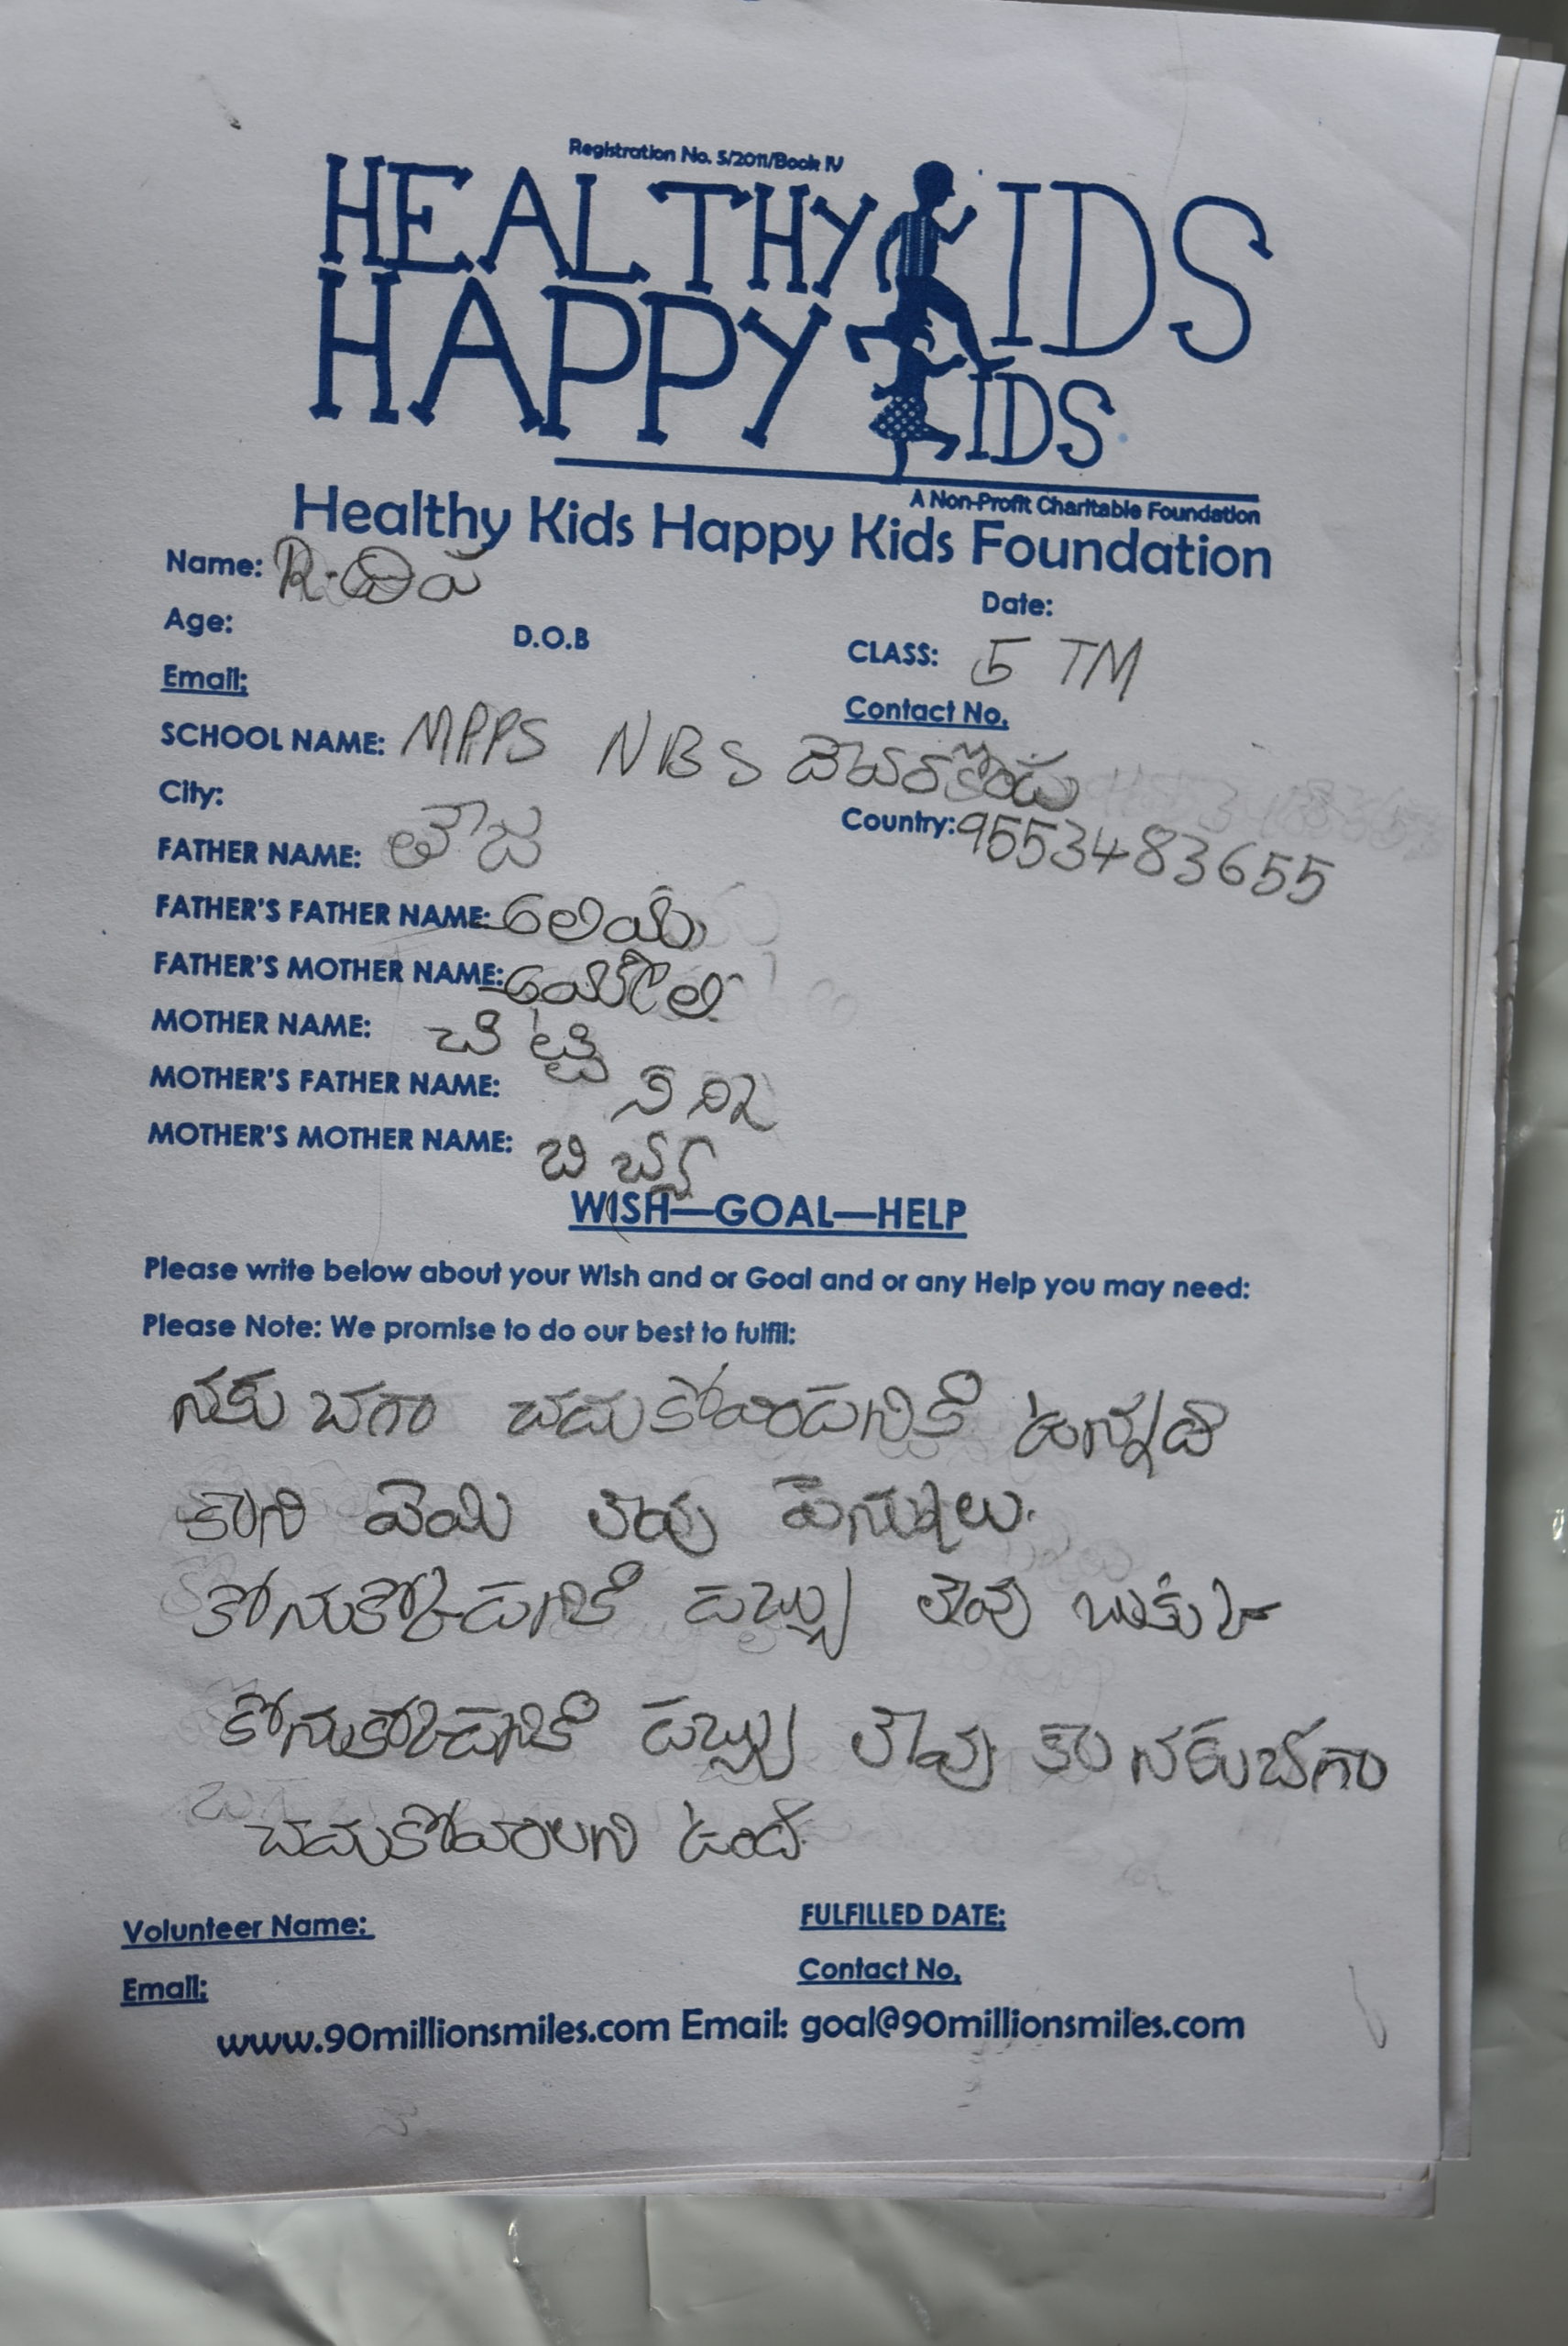 Registration No. 5/2011/Book IV
HEALTHY KIDS
HAPPY KIDS
A Non-Profit Charitable Foundation
Healthy Kids Happy Kids Foundation
Name: R.
Date:
Age: D.O.B
CLASS: 5 TM
Email:
Contact No.
SCHOOL NAME: MPPS NBS దెవరకొండ
City:
Country: 9553483655
FATHER NAME: తెజ
FATHER'S FATHER NAME:
FATHER'S MOTHER NAME:
MOTHER NAME: చిట్టి
MOTHER'S FATHER NAME:
MOTHER'S MOTHER NAME:
WISH—GOAL—HELP
Please write below about your Wish and or Goal and or any Help you may need:
Please Note: We promise to do our best to fulfil:
నకు బగా చదుకోవడనికి ఉన్నది
కాని లెవు పెన్నులు.
కోనుకోడనికి డబ్బు లెవు బుకు
కోనుకోడనికి డబ్బు లెవు నకు బగా
చదుకోవాలని ఉంది.
Volunteer Name:
FULFILLED DATE:
Email:
Contact No.
www.90millionsmiles.com Email: goal@90millionsmiles.com